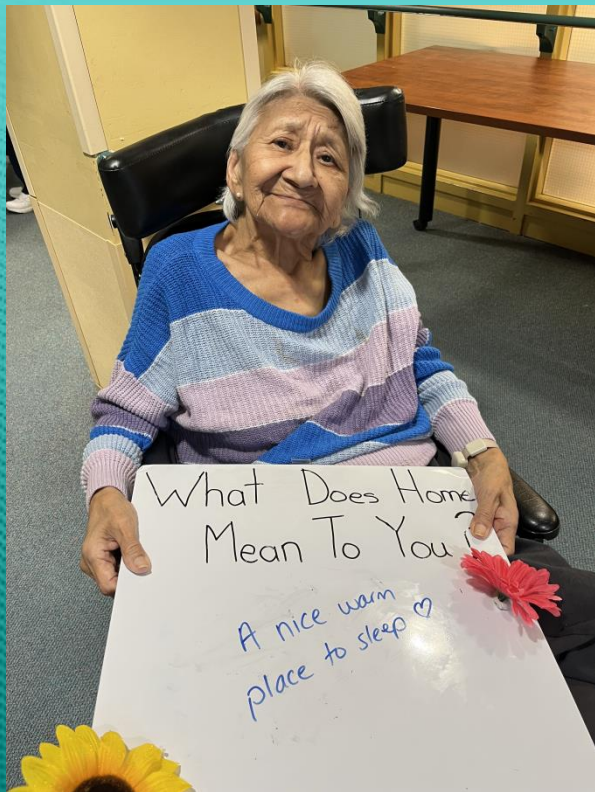 What Does Home
Mean To You?
A nice warm
place to sleep ♡